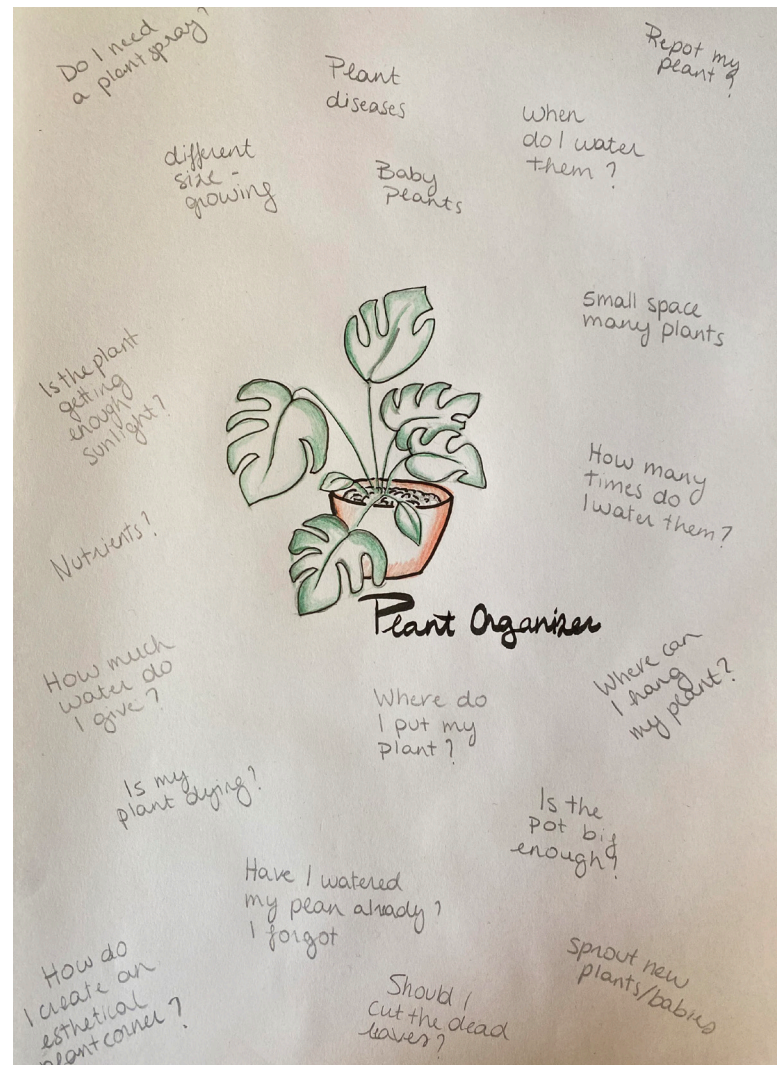 Do I need
a plant spray?
Plant
diseases
Repot my
plant?
When
do I water
them?
different
size -
growing
Baby
Plants
Small space
many plants
Is the plant
getting
enough
sunlight?
How many
times do
I water them?
Nutrients?
Plant Organizer
How much
water do
I give?
Where do
I put my
plant?
Where can
I hang
my plant?
Is my
plant dying?
Is the
pot big
enough?
Have I watered
my plean already?
I forgot
How do
I create an
esthetical
plant corner?
Should I
cut the dead
leaves?
Sprout new
plants/babies